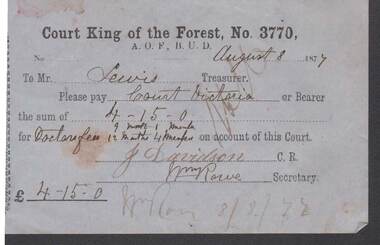 Court King of the Forest, No. 3770,
A. O. F., B. U. D.
No August 8 1877
To Mr. Lewis Treasurer.
Please pay Court Victoria or Bearer
the sum of 4-15-0
9 months 1
for Doctors fees 12 Months 4 on account of this Court.
J Davidson C. R.
Wm Rowe Secretary.
£ 4-15-0
Wm Rowe 8/8/77